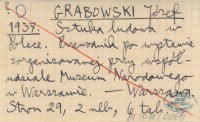 GRABOWSKI Józef
1937. Sztuka ludowa w
Polsce. Przewodnik po wystawie
zorganizowanej przy współ-
udziale Muzeum Narodowego
w Warszawie. — Warszawa.
Stron 29, 2 nlb, 6 tabl.